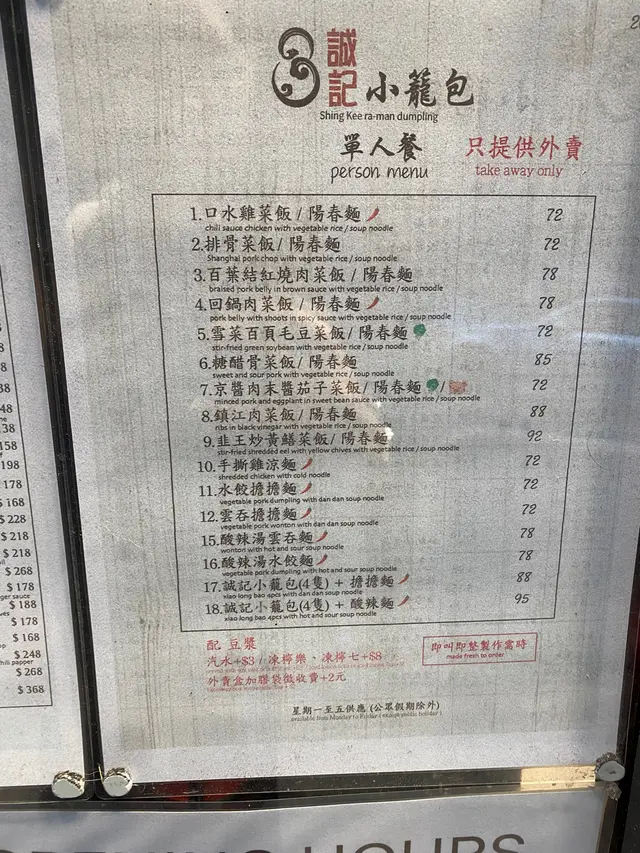 誠記
小籠包
Shing Kee ra-man dumpling
單人餐 只提供外賣
person menu take away only
1.口水雞菜飯 / 陽春麵 72
chili sauce chicken with vegetable rice / soup noodle
2.排骨菜飯 / 陽春麵 72
Shanghai pork chop with vegetable rice / soup noodle
3.百葉結紅燒肉菜飯 / 陽春麵 78
braised pork belly in brown sauce with vegetable rice / soup noodle
4.回鍋肉菜飯 / 陽春麵 78
pork belly with shoots in spicy sauce with vegetable rice / soup noodle
5.雪菜百頁毛豆菜飯/ 陽春麵 72
stir-fried green soybean with vegetable rice / soup noodle
6.糖醋骨菜飯/ 陽春麵 85
sweet and sour pork with vegetable rice / soup noodle
7.京醬肉末醬茄子菜飯/ 陽春麵 / 72
minced pork and eggplant in sweet bean sauce with vegetable rice / soup noodle
8.鎮江肉菜飯/ 陽春麵 88
ribs in black vinegar with vegetable rice / soup noodle
9.韭王炒黃鱔菜飯/ 陽春麵 92
stir-fried shredded eel with yellow chives with vegetable rice / soup noodle
10.手撕雞涼麵 72
shredded chicken with cold noodle
11.水餃擔擔麵 72
vegetable pork dumpling with dan dan soup noodle
12.雲吞擔擔麵 72
vegetable pork wonton with dan dan soup noodle
15.酸辣湯雲吞麵 78
wonton with hot and sour soup noodle
16.酸辣湯水餃麵 78
vegetable pork dumpling with hot and sour soup noodle
17.誠記小籠包(4隻) + 擔擔麵 88
xiao long bao 4pcs with dan dan soup noodle
18.誠記小籠包(4隻) + 酸辣麵 95
xiao long bao 4pcs with hot and sour soup noodle
配 豆漿
汽水+$3 / 凍檸樂、凍檸七+$8
外賣盒加膠袋徵收費+2元
即叫即整製作需時
made fresh to order
星期一至五供應 (公眾假期除外)
available from Monday to Friday ( except public holiday )
158
198
178
$ 168
$ 228
$ 218
$ 218
$ 268
$ 178
$ 188
$ 178
$ 168
$ 248
$ 268
$ 368
OPENING HOURS